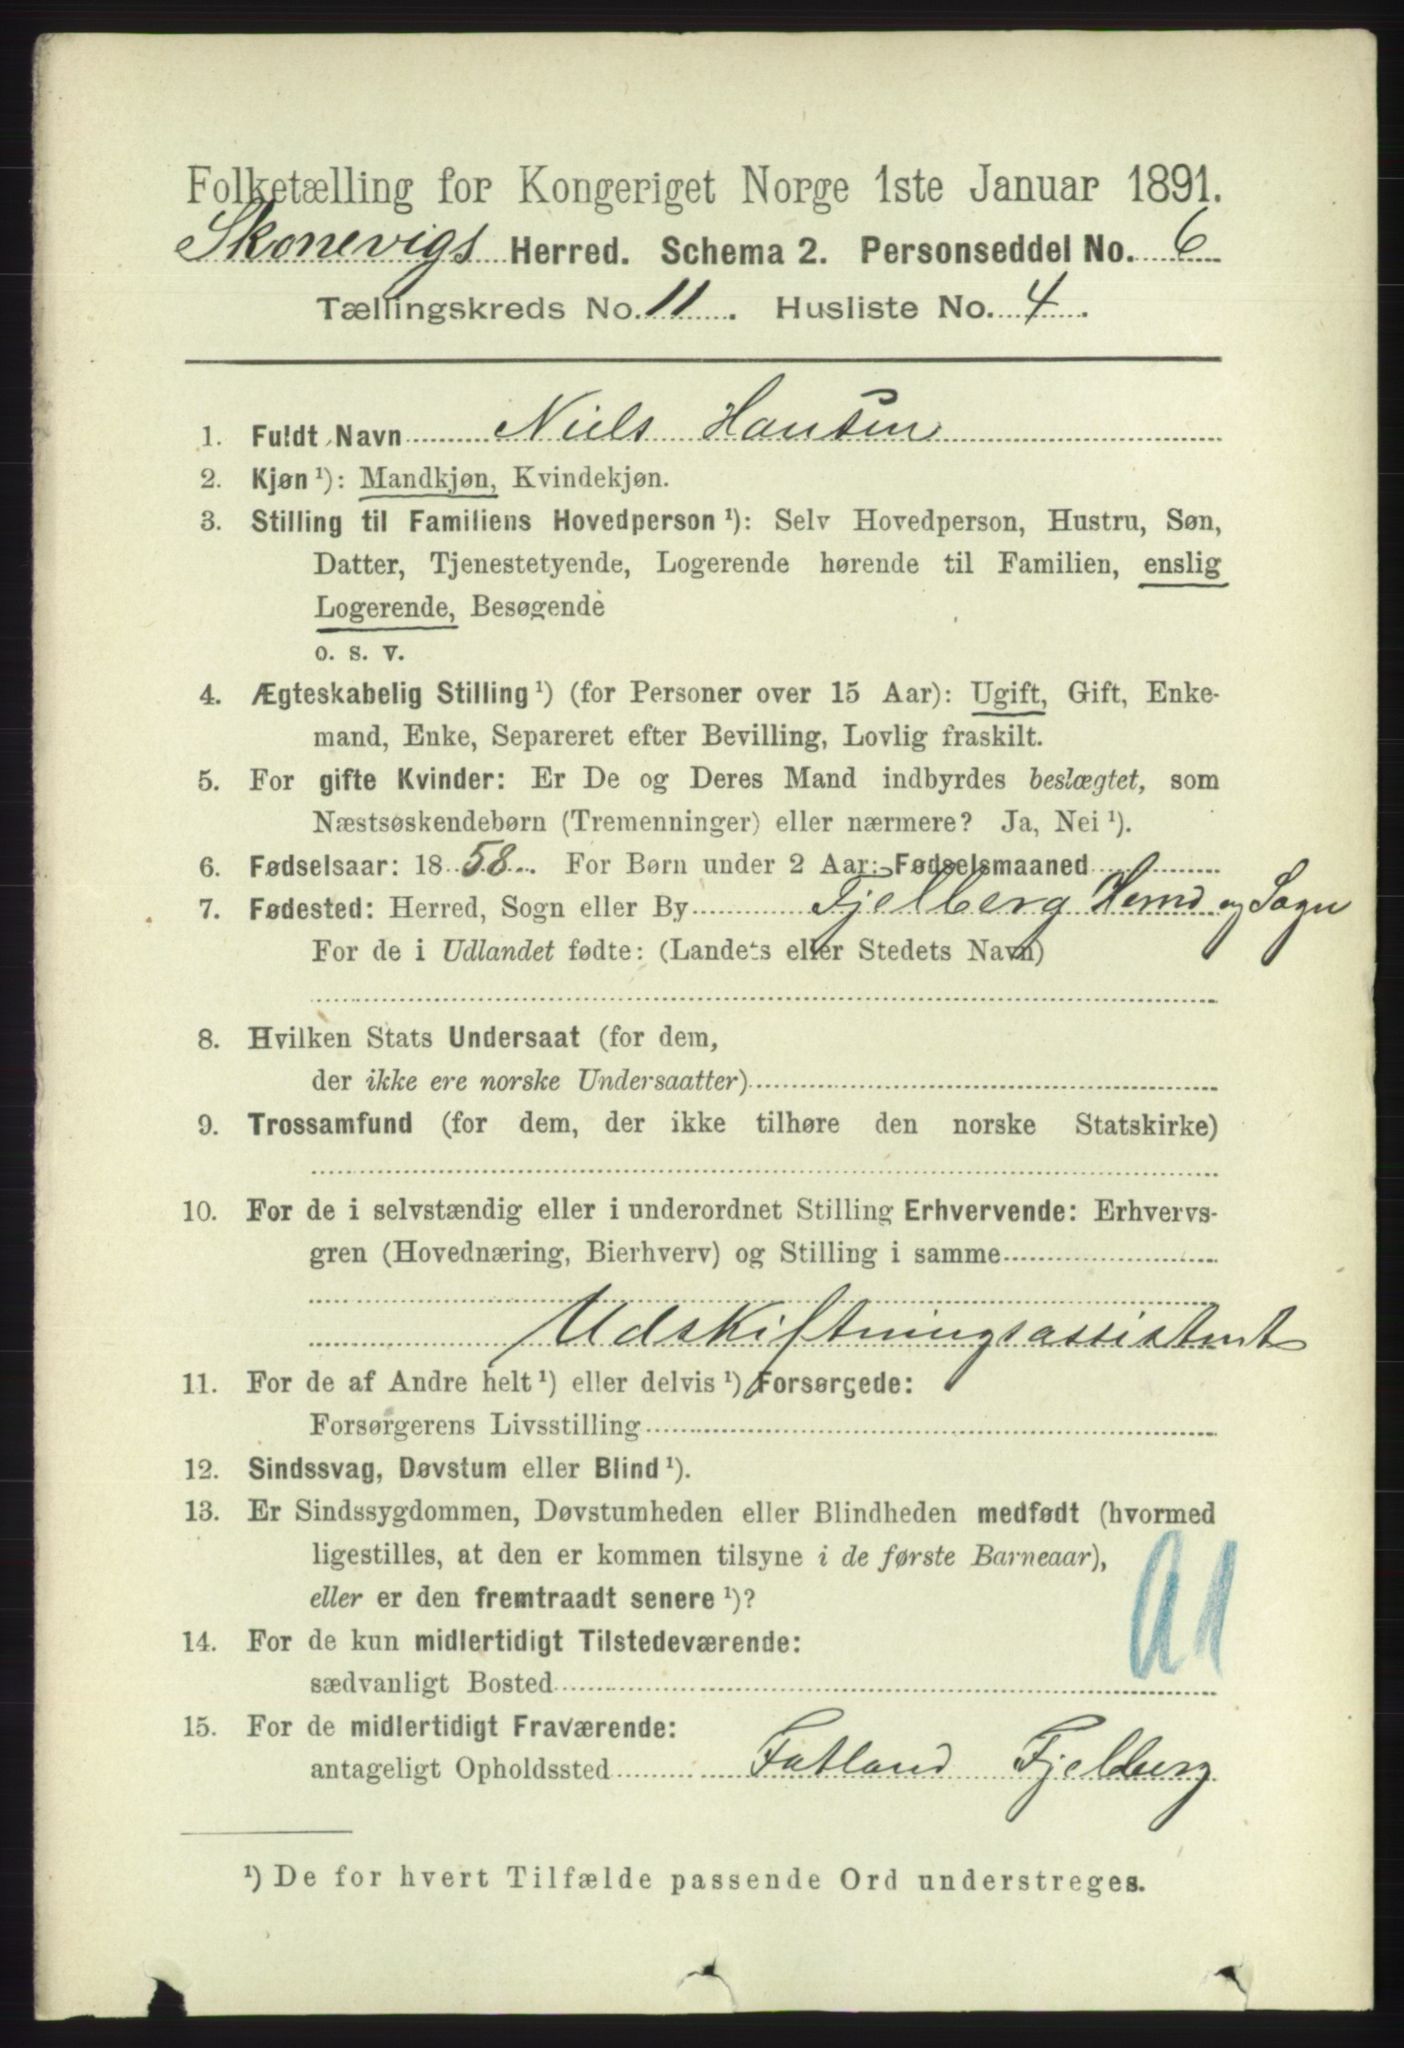 Folketælling for Kongeriget Norge 1ste Januar 1891.
Skonevigs Herred. Schema 2. Personseddel No. 6
Tællingskreds No. 11. Husliste No. 4.
1. Fuldt Navn Niels Hansen
2. Kjøn ¹): Mandkjøn, Kvindekjøn.
3. Stilling til Familiens Hovedperson ¹): Selv Hovedperson, Hustru, Søn,
Datter, Tjenestetyende, Logerende hørende til Familien, enslig
Logerende, Besøgende
o. s. v.
4. Ægteskabelig Stilling ¹) (for Personer over 15 Aar): Ugift, Gift, Enke-
mand, Enke, Separeret efter Bevilling, Lovlig fraskilt.
5. For gifte Kvinder: Er De og Deres Mand indbyrdes beslægtet, som
Næstsøskendebørn (Tremenninger) eller nærmere? Ja, Nei ¹).
6. Fødselsaar: 1858. For Børn under 2 Aar: Fødselsmaaned
7. Fødested: Herred, Sogn eller By Fjelberg Herred og Sogn
For de i Udlandet fødte: (Landets eller Stedets Navn)
8. Hvilken Stats Undersaat (for dem,
der ikke ere norske Undersaatter)
9. Trossamfund (for dem, der ikke tilhøre den norske Statskirke)
10. For de i selvstændig eller i underordnet Stilling Erhvervende: Erhvervs-
gren (Hovednæring, Bierhverv) og Stilling i samme
Udskiftningsassistent
11. For de af Andre helt ¹) eller delvis ¹) Forsørgede:
Forsørgerens Livsstilling
12. Sindssvag, Døvstum eller Blind ¹).
13. Er Sindssygdommen, Døvstumheden eller Blindheden medfødt (hvormed
ligestilles, at den er kommen tilsyne i de første Barneaar),
eller er den fremtraadt senere ¹)?
14. For de kun midlertidigt Tilstedeværende:
sædvanligt Bosted
15. For de midlertidigt Fraværende:
antageligt Opholdssted Fatland Fjelberg
¹) De for hvert Tilfælde passende Ord understreges.